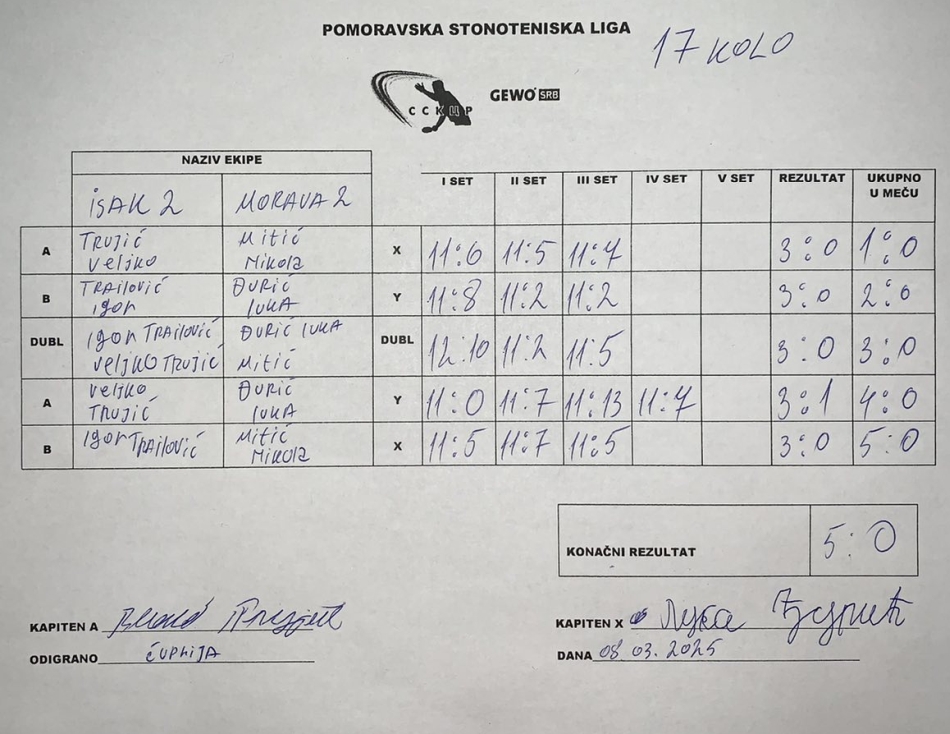 POMORAVSKA STONOTENISKA LIGA
17 KOLO
ССКЦР GEWO SRB
NAZIV EKIPE
I SET II SET III SET IV SET V SET REZULTAT UKUPNO U MEČU
ISAK 2 MORAVA 2
A TRUJIĆ VELJKO Mitić Nikola X 11:6 11:5 11:4 3:0 1:0
B TRAILOVIĆ Igor ĐURIĆ LUKA Y 11:8 11:2 11:2 3:0 2:0
DUBL Igor TRAILOVIĆ VELJKO TRUJIĆ ĐURIĆ LUKA Mitić DUBL 12:10 11:2 11:5 3:0 3:0
A Veljko TRUJIĆ ĐURIĆ LUKA Y 11:0 11:7 11:13 11:4 3:1 4:0
B Igor TRAILOVIĆ Mitić Nikola X 11:5 11:7 11:5 3:0 5:0
KONAČNI REZULTAT 5:0
KAPITEN A
KAPITEN X Лука Ђурић
ODIGRANO ĆUPRIJA
DANA 08.03.2025